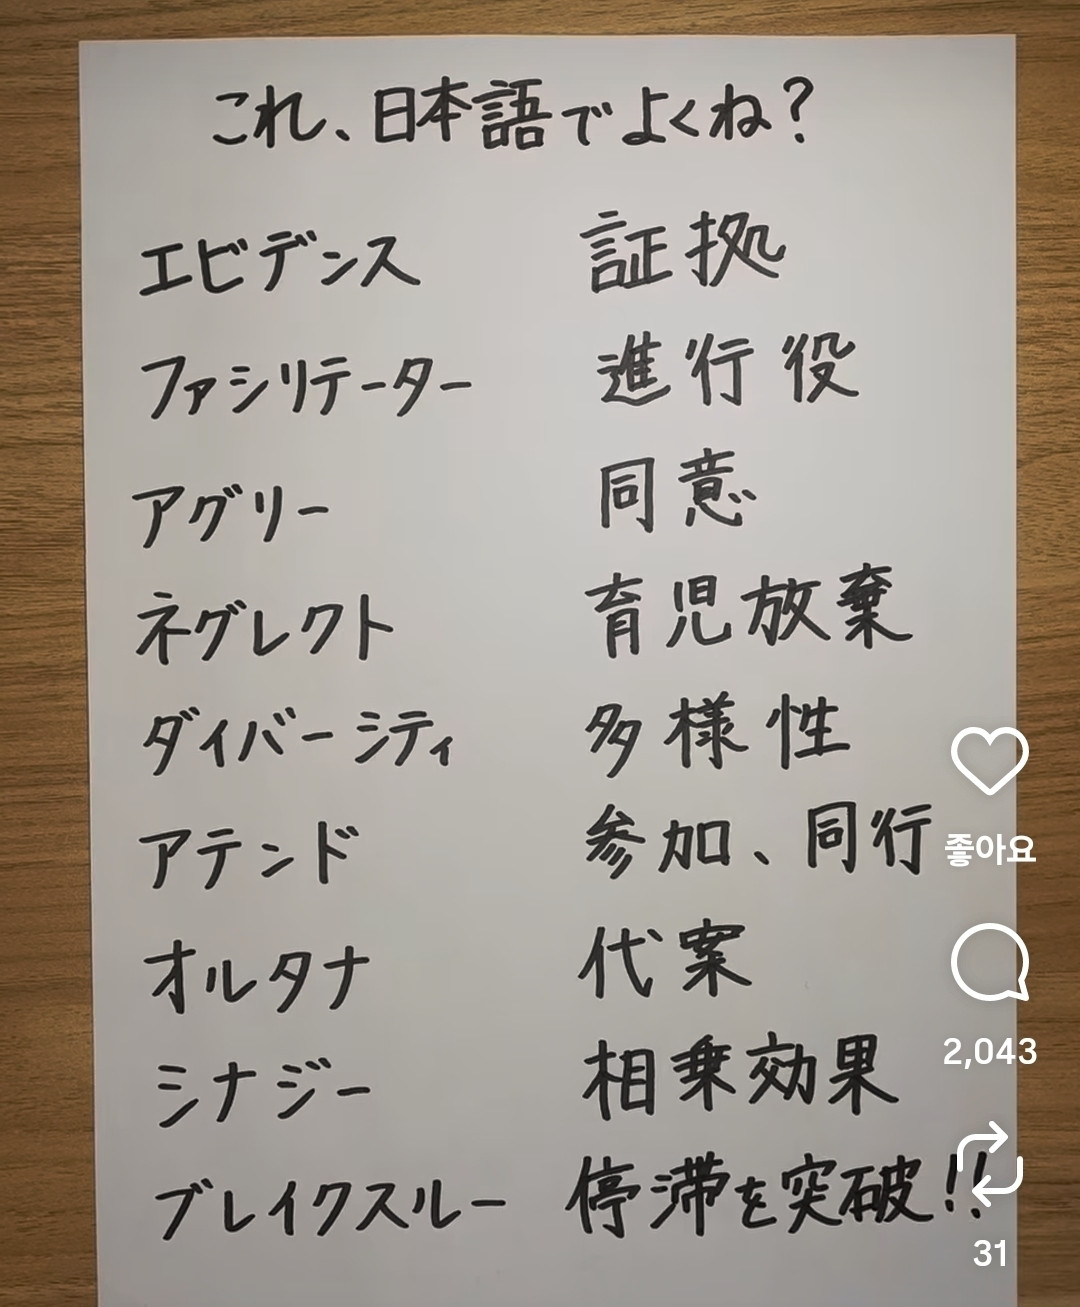 これ、日本語でよくね?
エビデンス 証拠
ファシリテーター 進行役
アグリー 同意
ネグレクト 育児放棄
ダイバーシティ 多様性
アテンド 参加、同行
オルタナ 代案
シナジー 相乗効果
ブレイクスルー 停滞を突破!!
좋아요
2,043
31